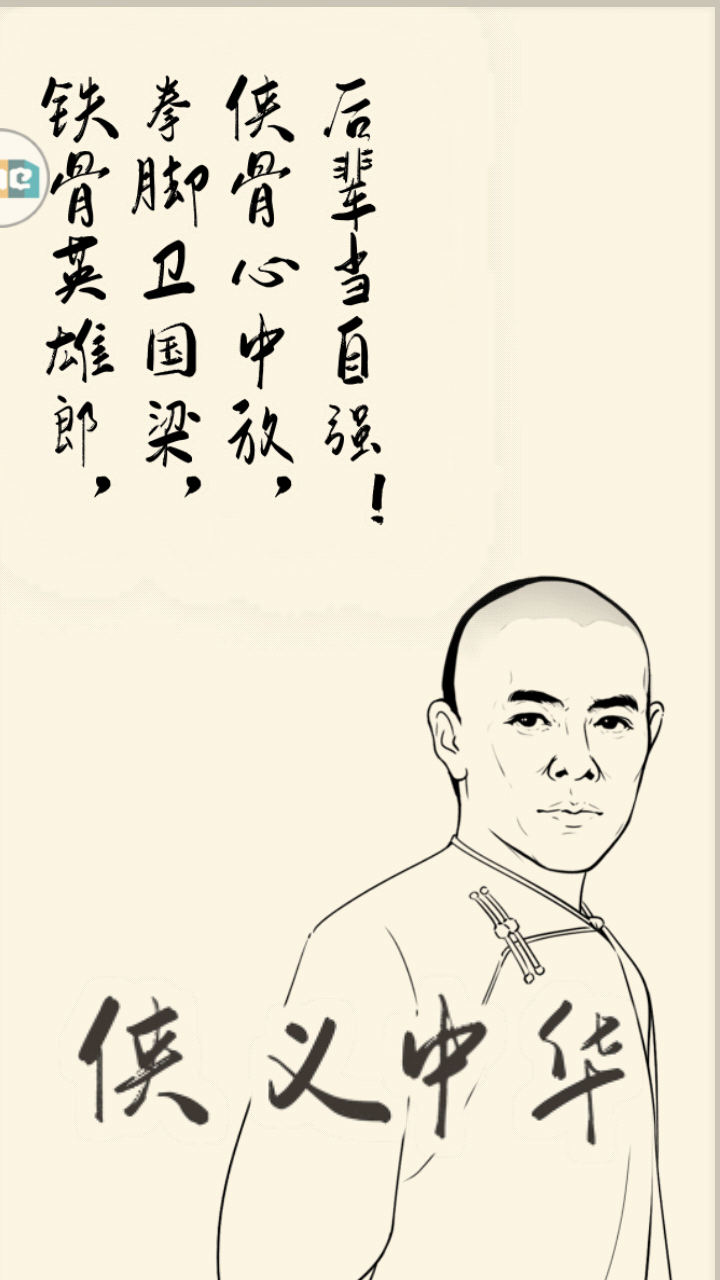 铁骨英雄郎，
拳脚卫国梁，
侠骨心中放，
后辈当自强！
侠义中华